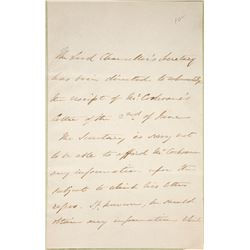 The Lord Chancellor's Secretary
has been directed to acknowledge
the receipt of Mr Cochrane's
letter of the 2nd of June
The Secretary is sorry not
to be able to afford Mr Cochrane
any information upon the
subject to which his letter
refers. If however, he should
obtain any information